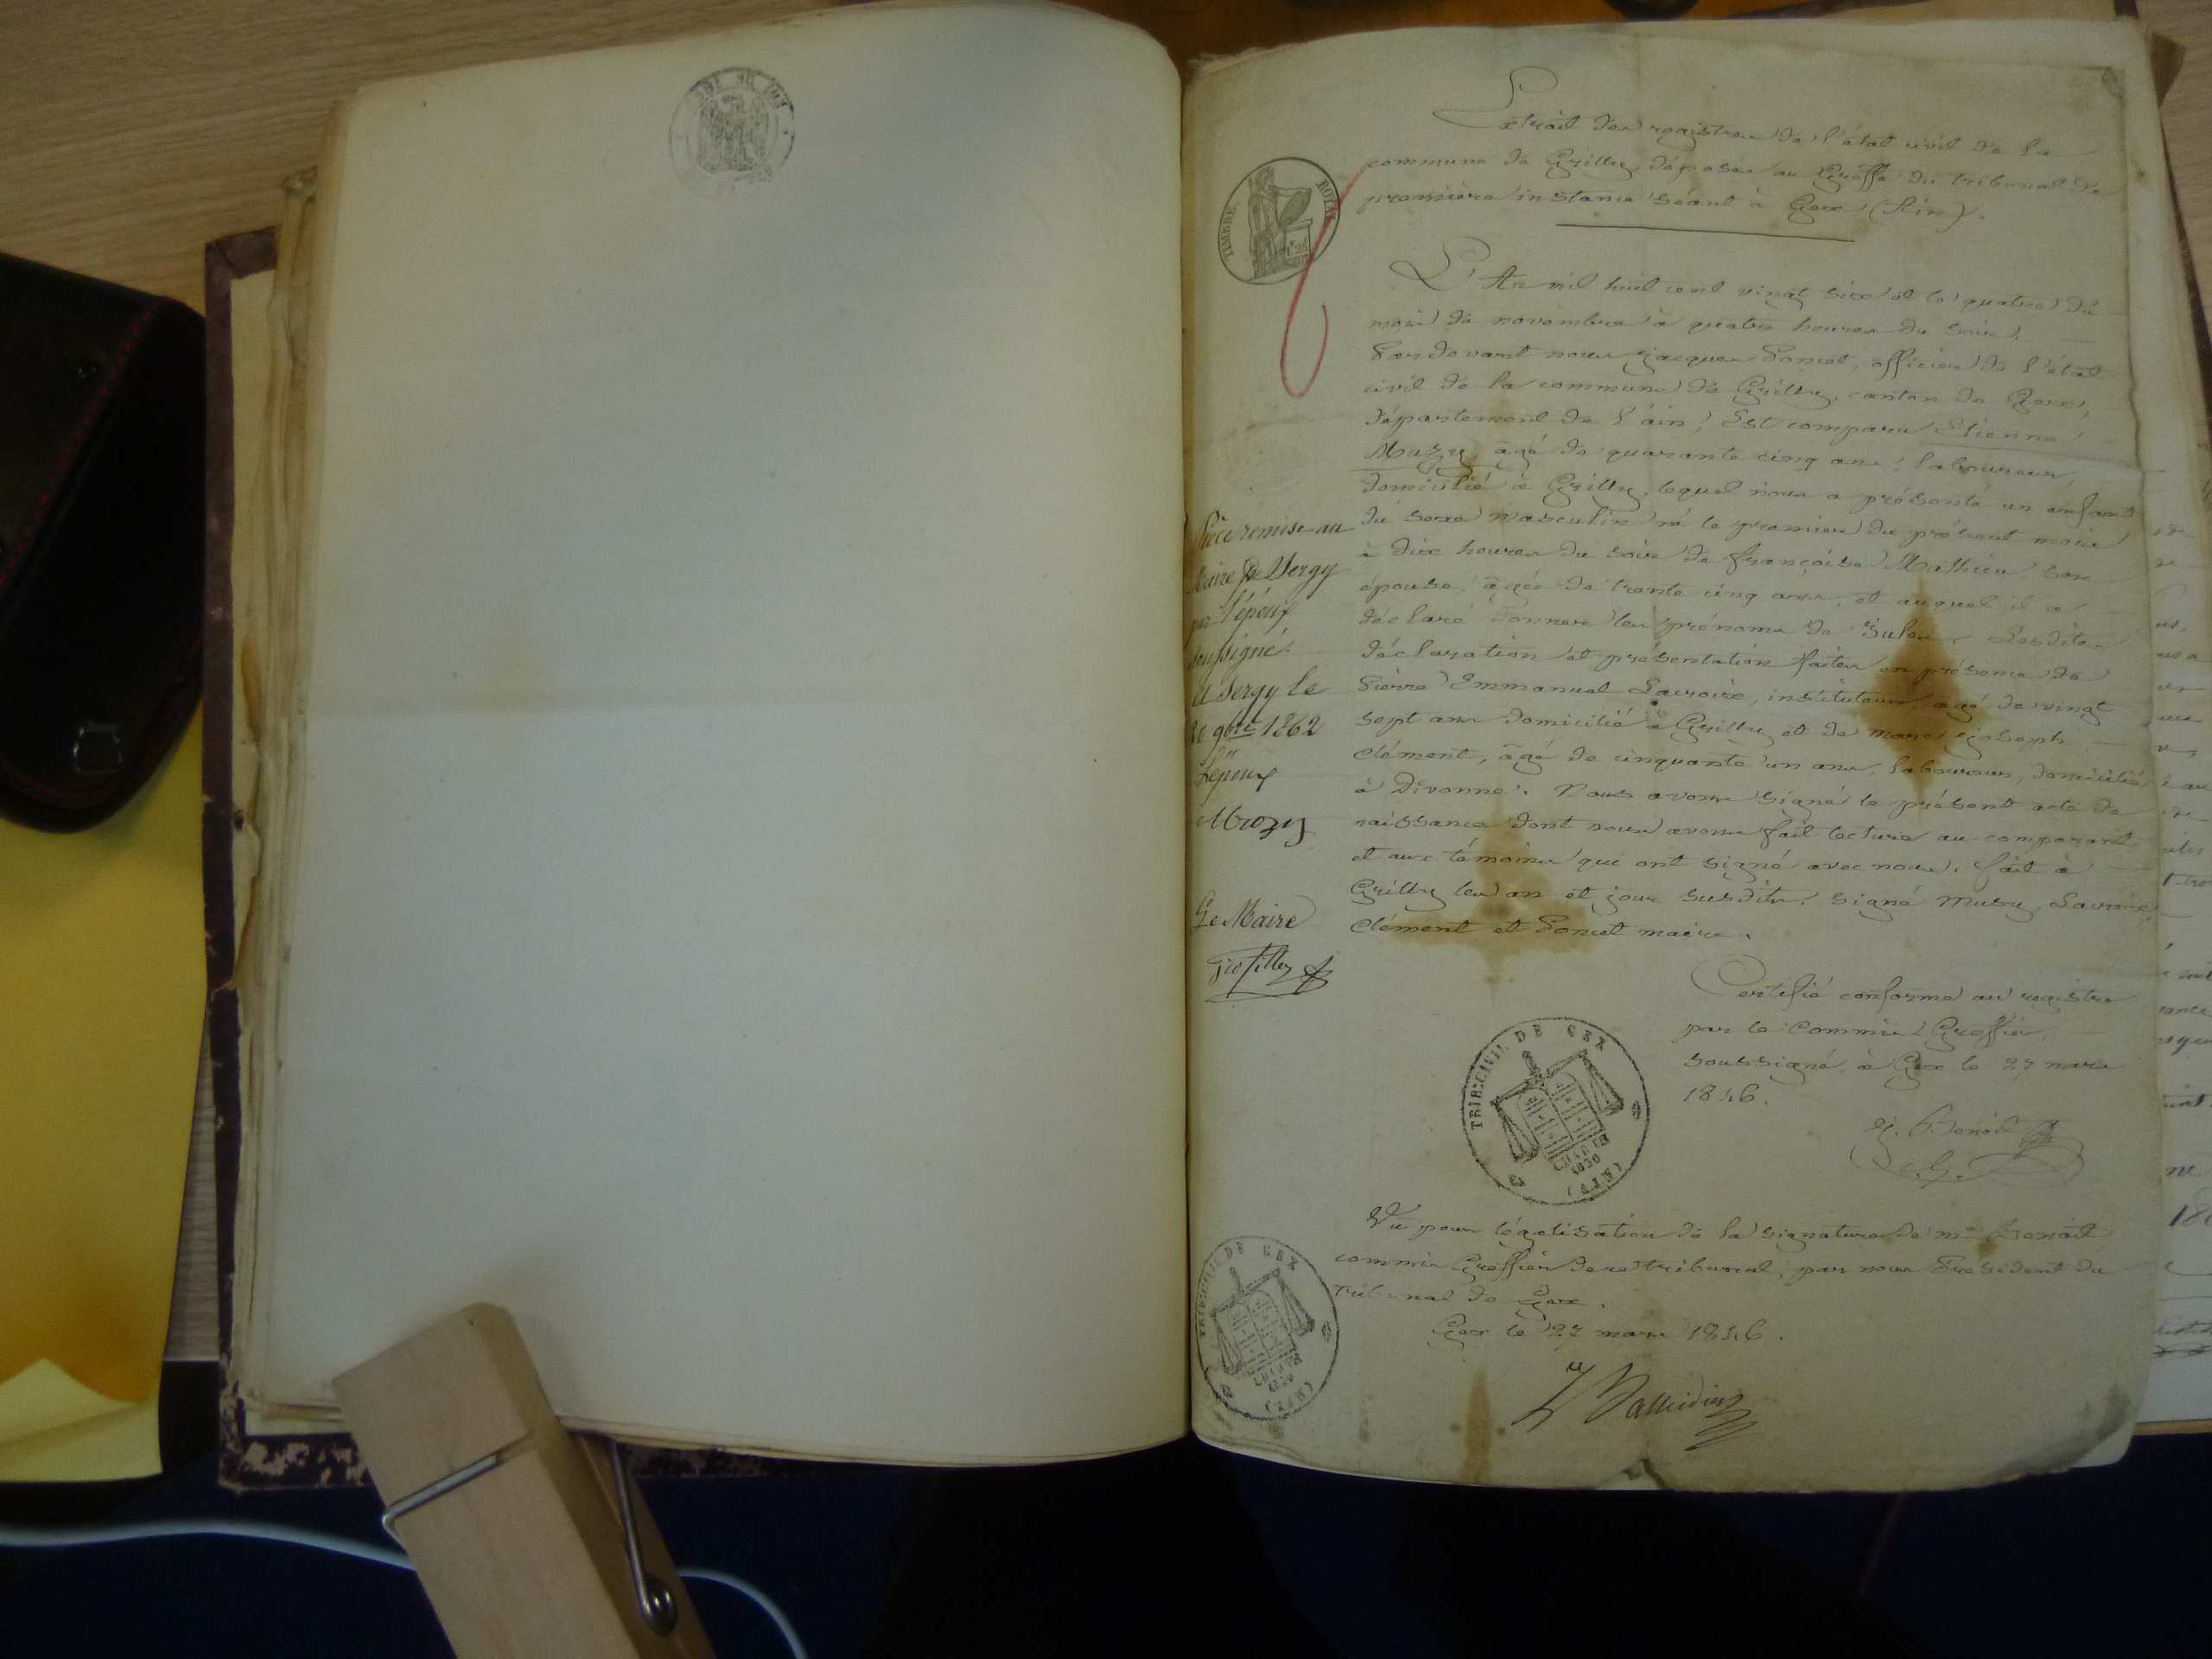 TIMBRE ROYAL
Extrait des registres de l'état civil de la
commune de Grilly, déposés au Greffe du tribunal de
première instance séant à Gex (Ain).
L'An mil huit cent vingt six et le quatre du
mois de novembre à quatre heures du soir.
Pardevant nous jacques Poncet, officier de l'état
civil de la commune de Grilly, canton de Gex,
département de l'ain, Est comparu Etienne
Muzy, âgé de quarante cinq ans, laboureur,
domicilié à Grilly, lequel nous a présenté un enfant
du sexe masculin né le premier du présent mois
à dix heures du soir de françoise Mathieu, son
épouse, âgée de trente cinq ans, et auquel il a
déclaré donner les prénoms de Jules. Lesdites
déclaration et présentation faites en présence de
Pierre Emmanuel Lacroix, instituteur, âgé de vingt
sept ans domicilié à Grilly et de marc joseph
Clément, âgé de cinquante un ans, laboureur, domicilié
à Divonne. Nous avons signé le présent acte de
naissance dont nous avons fait lecture au comparant
et aux témoins qui ont signé avec nous. fait à
Grilly les an et jour susdits. signé Musy, Lacroix,
Clément et Poncet maire.
Certifié conforme au registre
par le Commis Greffier
soussigné, à Gex le 27 mars
1846.
Vu pour légalisation de la signature de me Benoit
commis Greffier de ce tribunal, par nous Président du
Tribunal de Gex.
Gex le 27 mars 1846.
Pièce remise au
Maire de Sergy
par l'époux
soussigné.
A Sergy le
9bre 1862
L'époux
Muzy
Le Maire
TRIB: CIVIL DE GEX
CHARTE
1830
(AIN)
TRIB: CIVIL DE GEX
CHARTE
1830
(AIN)